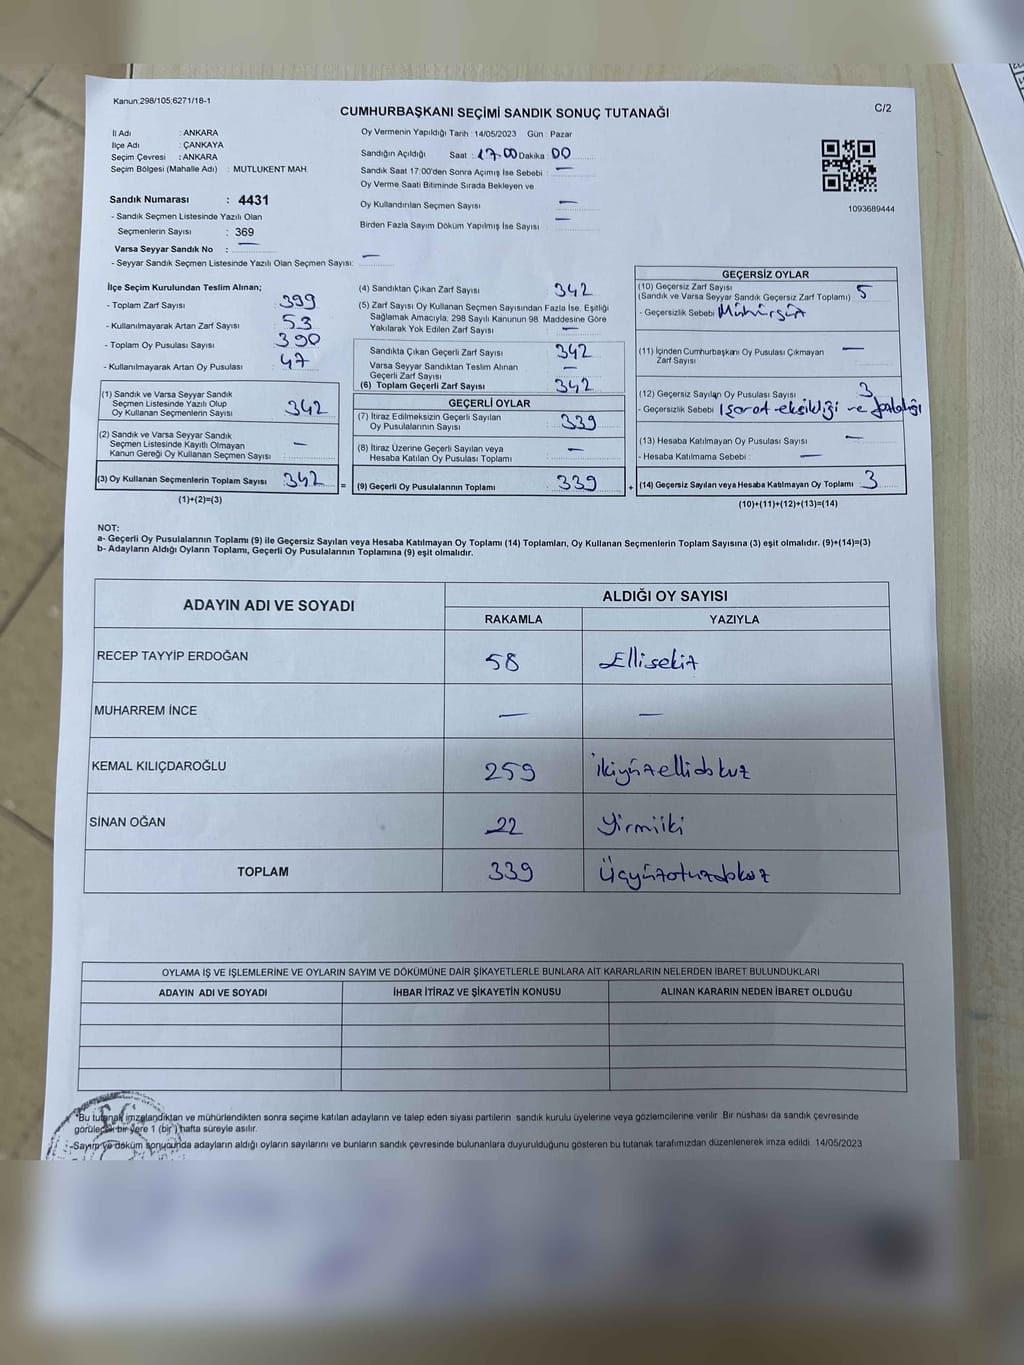 Kanun,298/105,6271/18-1
CUMHURBAŞKANI SEÇİMİ SANDIK SONUÇ TUTANAĞI
C/2
İl Adı : ANKARA
İlçe Adı : ÇANKAYA
Seçim Çevresi : ANKARA
Seçim Bölgesi (Mahalle Adı) : MUTLUKENT MAH.
Sandık Numarası : 4431
- Sandık Seçmen Listesinde Yazılı Olan
Seçmenlerin Sayısı : 369
Varsa Seyyar Sandık No : —
- Seyyar Sandık Seçmen Listesinde Yazılı Olan Seçmen Sayısı: —
Oy Vermenin Yapıldığı Tarih : 14/05/2023 Gün : Pazar
Sandığın Açıldığı Saat : 17.00 Dakika : 00
Sandık Saat 17:00'den Sonra Açımış İse Sebebi : —
Oy Verme Saati Bitiminde Sırada Bekleyen ve
Oy Kullandırılan Seçmen Sayısı —
Birden Fazla Sayım Döküm Yapılmış İse Sayısı : —
1093689444
İlçe Seçim Kurulundan Teslim Alınan;
- Toplam Zarf Sayısı 399
- Kullanılmayarak Artan Zarf Sayısı 53
- Toplam Oy Pusulası Sayısı 390
- Kullanılmayarak Artan Oy Pusulası 47
(1) Sandık ve Varsa Seyyar Sandık
Seçmen Listesinde Yazılı Olup
Oy Kullanan Seçmenlerin Sayısı 342
(2) Sandık ve Varsa Seyyar Sandık
Seçmen Listesinde Kayıtlı Olmayan
Kanun Gereği Oy Kullanan Seçmen Sayısı —
(3) Oy Kullanan Seçmenlerin Toplam Sayısı 342
(1)+(2)=(3)
(4) Sandıktan Çıkan Zarf Sayısı 342
(5) Zarf Sayısı Oy Kullanan Seçmen Sayısından Fazla İse, Eşitliği
Sağlamak Amacıyla; 298 Sayılı Kanunun 98. Maddesine Göre
Yakılarak Yok Edilen Zarf Sayısı —
Sandıkta Çıkan Geçerli Zarf Sayısı 342
Varsa Seyyar Sandıktan Teslim Alınan
Geçerli Zarf Sayısı —
(6) Toplam Geçerli Zarf Sayısı 342
GEÇERLİ OYLAR
(7) İtiraz Edilmeksizin Geçerli Sayılan
Oy Pusulalarının Sayısı 339
(8) İtiraz Üzerine Geçerli Sayılan veya
Hesaba Katılan Oy Pusulası Toplamı —
= (9) Geçerli Oy Pusulalarının Toplamı 339
GEÇERSİZ OYLAR
(10) Geçersiz Zarf Sayısı
(Sandık ve Varsa Seyyar Sandık Geçersiz Zarf Toplamı) 5
- Geçersizlik Sebebi : Mühürsüz
(11) İçinden Cumhurbaşkanı Oy Pusulası Çıkmayan
Zarf Sayısı —
(12) Geçersiz Sayılan Oy Pusulası Sayısı 3
- Geçersizlik Sebebi : İşaret eksikliği ve fazlalığı
(13) Hesaba Katılmayan Oy Pusulası Sayısı —
- Hesaba Katılmama Sebebi : —
+ (14) Geçersiz Sayılan veya Hesaba Katılmayan Oy Toplamı 3
(10)+(11)+(12)+(13)=(14)
NOT:
a- Geçerli Oy Pusulalarının Toplamı (9) ile Geçersiz Sayılan veya Hesaba Katılmayan Oy Toplamı (14) Toplamları, Oy Kullanan Seçmenlerin Toplam Sayısına (3) eşit olmalıdır. (9)+(14)=(3)
b- Adayların Aldığı Oyların Toplamı, Geçerli Oy Pusulalarının Toplamına (9) eşit olmalıdır.
ADAYIN ADI VE SOYADI
ALDIĞI OY SAYISI
RAKAMLA YAZIYLA
RECEP TAYYİP ERDOĞAN 58 Ellisekiz
MUHARREM İNCE — —
KEMAL KILIÇDAROĞLU 259 ikiyüzellidokuz
SİNAN OĞAN 22 Yirmiiki
TOPLAM 339 Üçyüzotuzdokuz
OYLAMA İŞ VE İŞLEMLERİNE VE OYLARIN SAYIM VE DÖKÜMÜNE DAİR ŞİKAYETLERLE BUNLARA AİT KARARLARIN NELERDEN İBARET BULUNDUKLARI
ADAYIN ADI VE SOYADI İHBAR İTİRAZ VE ŞİKAYETİN KONUSU ALINAN KARARIN NEDEN İBARET OLDUĞU
*Bu tutanak imzalandıktan ve mühürlendikten sonra seçime katılan adayların ve talep eden siyasi partilerin sandık kurulu üyelerine veya gözlemcilerine verilir. Bir nüshası da sandık çevresinde
görülecek bir yere 1 (bir) hafta süreyle asılır.
-Sayım ve döküm sonucunda adayların aldığı oyların sayılarını ve bunların sandık çevresinde bulunanlara duyurulduğunu gösteren bu tutanak tarafımızdan düzenlenerek imza edildi. 14/05/2023